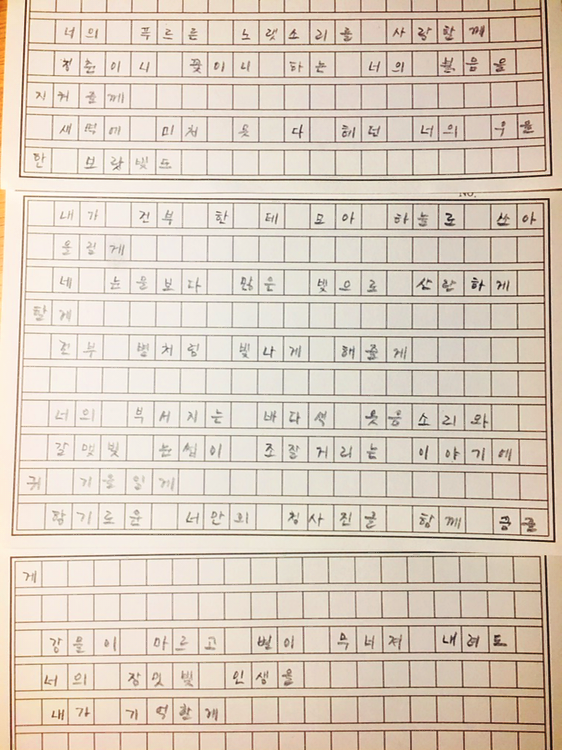 너의 푸르른 노랫소리를 사랑할께
청춘이니 꽃이니 하는 너의 붉음을
지켜줄께
새벽에 미처 못 다 헤던 너의 우울
한 보랏빛도
NO.
내가 전부 한데 모아 하늘로 쏘아
올릴게
네 눈물보다 많은 빛으로 산란하게
할게
전부 별처럼 빛나게 해줄게
너의 부서지는 바다색 웃음소리와
갈맷빛 눈썹이 조잘거리는 이야기에
귀 기울일게
향기로운 너만의 청사진을 함께 꿈꿀
게
강물이 마르고 별이 무너져 내려도
너의 장밋빛 인생을
내가 기억할게